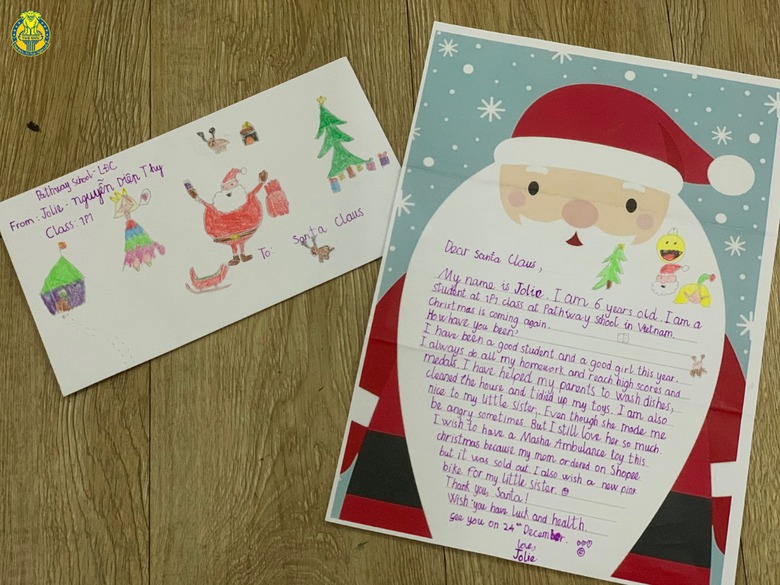 Pathway School - LĐC
From : Jolie - Nguyễn Diệp Thy
Class : 1P1
To: Santa Claus
Dear Santa Claus,
My name is Jolie. I am 6 years old. I am a
student at 1P1 class at Pathway school in Vietnam.
Christmas is coming again.
How have you been?
I have been a good student and a good girl this year.
I always do all my homework and reach high scores and
medals. I have helped my parents to wash dishes,
cleaned the house and tidied up my toys. I am also
nice to my little sister. Even though she made me
be angry sometimes. But I still love her so much.
I wish to have a Masha Ambulance toy this
christmas because my mom ordered on Shopee
but it was sold out. I also wish a new pink
bike for my little sister.
Thank you, Santa!
Wish you have luck and health.
see you on 24th December.
Love,
Jolie